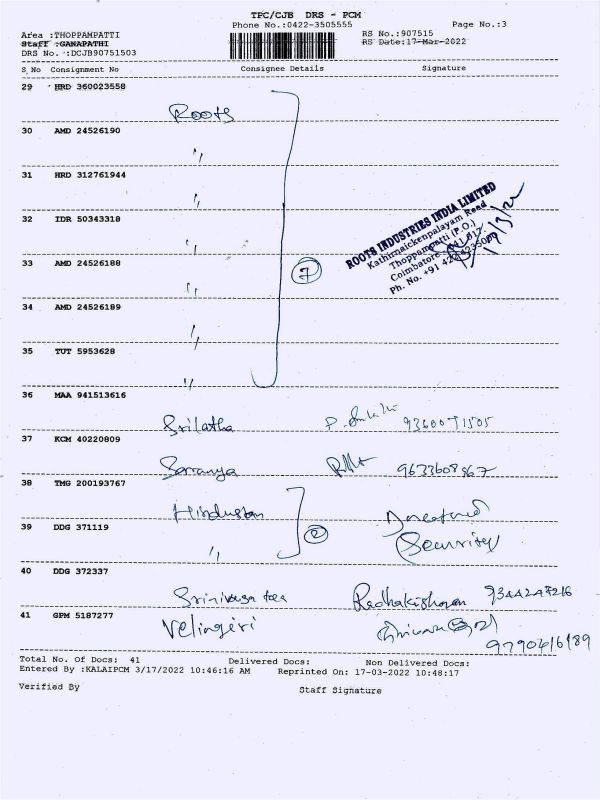 TPC/CJB DRS - PCM
Phone No.:0422-3505555
Page No.:3
Area :THOPPAMPATTI
RS No.:907515
Staff :GANAPATHI
RS Date:17-Mar-2022
DRS No. :DCJB90751503
S.No Consignment No Consignee Details Signature
29 HRD 360023558
Roots
30 AMD 24526190
"
31 HRD 312761944
"
32 IDR 50343318
"
33 AMD 24526188
"
34 AMD 24526189
"
35 TUT 5953628
"
7
ROOTS INDUSTRIES INDIA LIMITED
Kathirnaickenpalayam Road
Thoppampatti (P.O.)
Coimbatore 641 017.
Ph. No. +91 422
36 MAA 941513616
Srilatha
37 KCM 40220809
Saranya 9633608867
38 TMG 200193767
Hindustan
39 DDG 371119
" 2 Security
40 DDG 372337
Srinivasa tea Radhakishnan 9344247216
41 GPM 5187277
Velingiri
9790416189
Total No. Of Docs: 41 Delivered Docs: Non Delivered Docs:
Entered By :KALAIPCM 3/17/2022 10:46:16 AM Reprinted On: 17-03-2022 10:48:17
Verified By Staff Signature